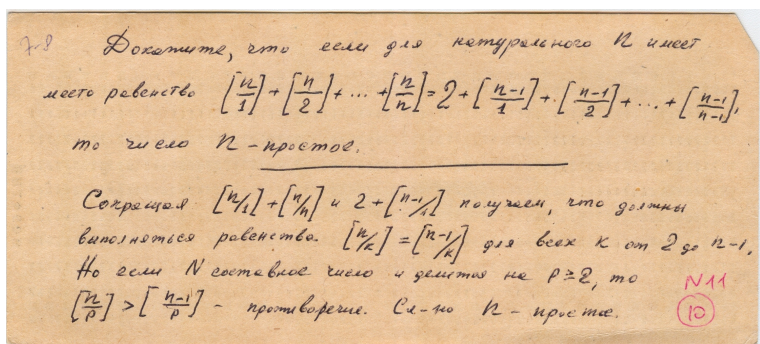 7-8 Докажите, что если для натурального n имеет
место равенство [n/1]+[n/2]+...+[n/n]=2+[n-1/1]+[n-1/2]+...+[n-1/n-1],
то число n - простое.
Сокращая [n/1]+[n/n] и 2+[n-1/1] получаем, что должны
выполняться равенства [n/k]=[n-1/k] для всех k от 2 до n-1.
Но если N составное число и делится на p≥2, то
[n/p]>[n-1/p] - противоречие. Сл-но n - простое.
N11
10